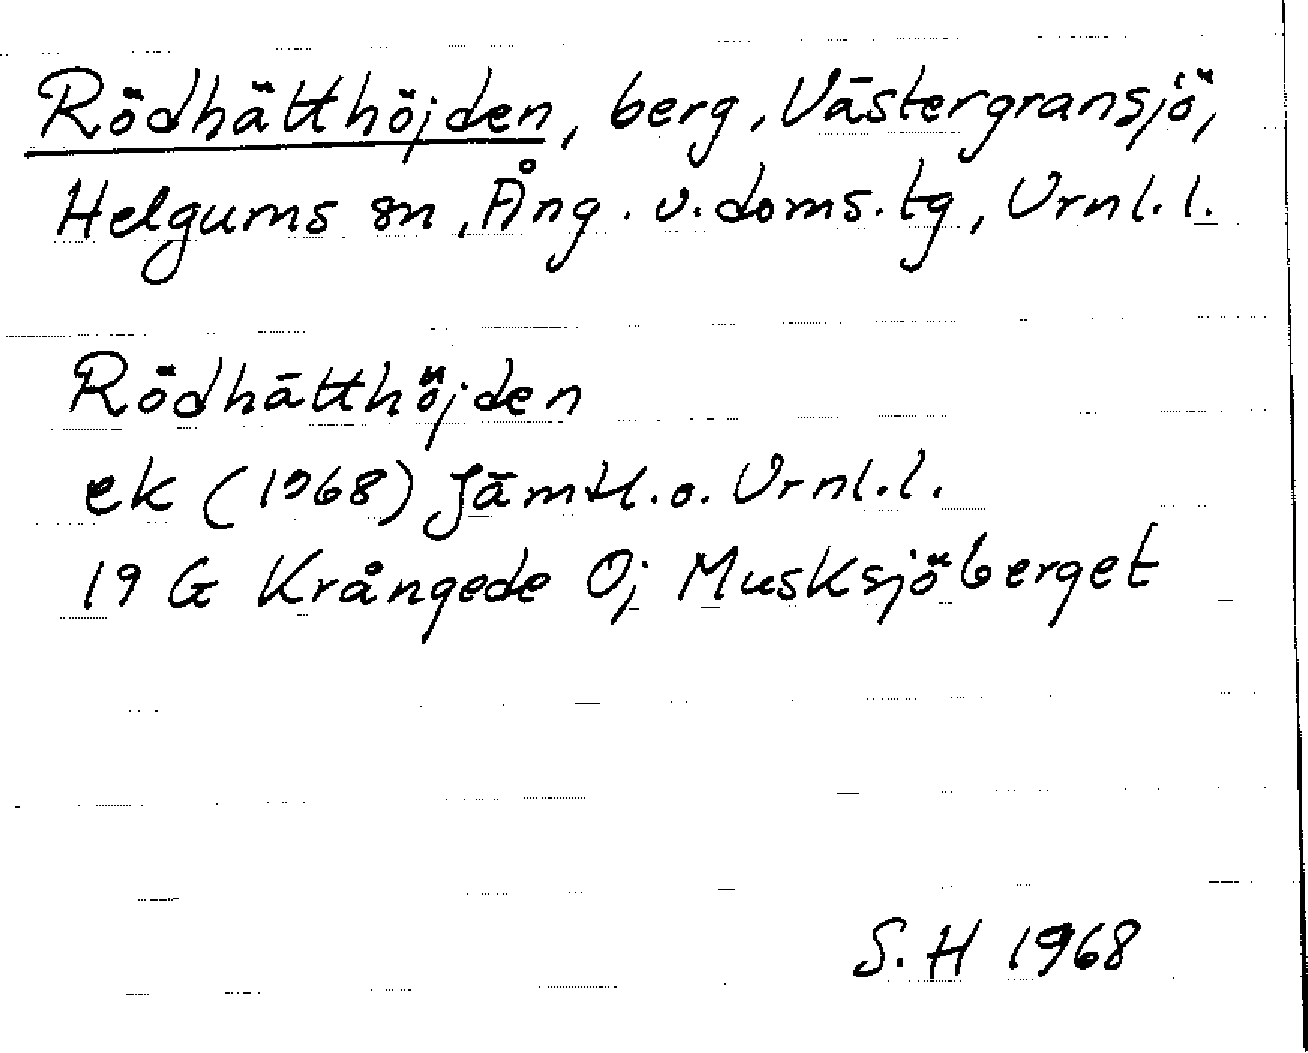 Rödhätthöjden, berg, Västergransjö,
Helgums sn, Ång. v. doms. tg, Vrnl. l.
Rödhätthöjden
ek (1968) Jämtl. o. Vrnl. l.
19 G Krångede Oj Musksjöberget
S. H 1968